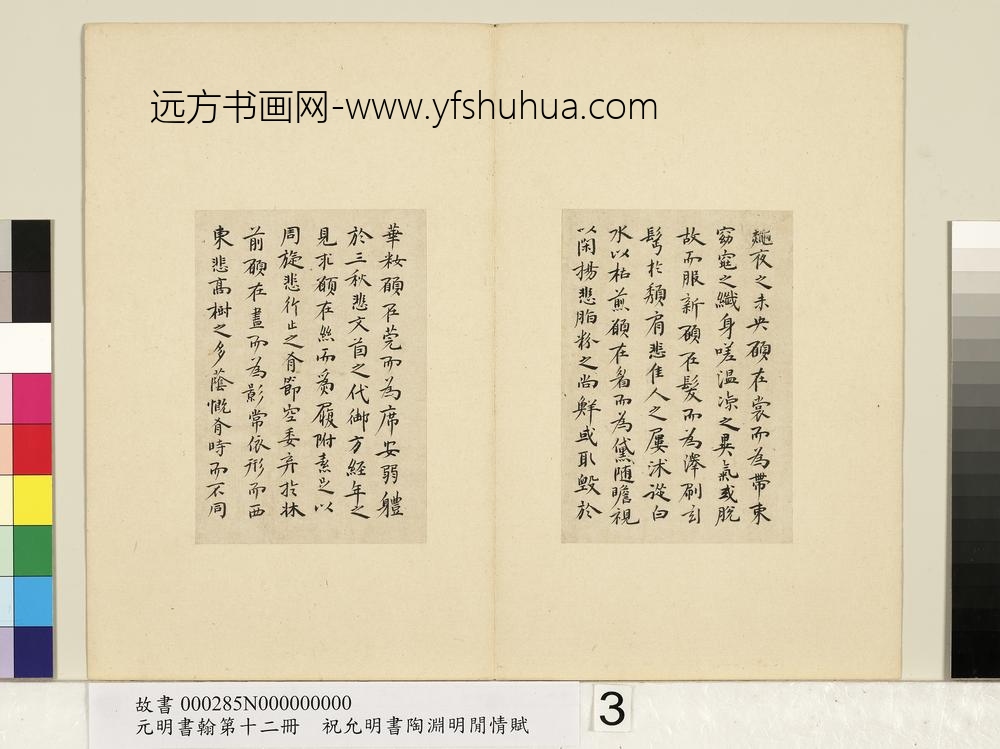 远方书画网-www.yfshuhua.com
夜之未央願在裳而為帶束
窈窕之纖身嗟温涼之異氣或脫
故而服新願在髮而為澤刷玄
鬢於頹肩悲佳人之屢沐從白
水以枯煎願在眉而為黛随瞻視
以閑揚悲脂粉之尚鮮或取毀於
華粧願在莞而為席安弱體
於三秋悲文茵之代御方經年之
見求願在絲而為履附素足以
周旋悲行止之有節空委弃於牀
前願在晝而為影常依形而西
東悲高樹之多蔭慨有時而不同
故書 000285N000000000
元明書翰第十二冊 祝允明書陶淵明閒情賦
3